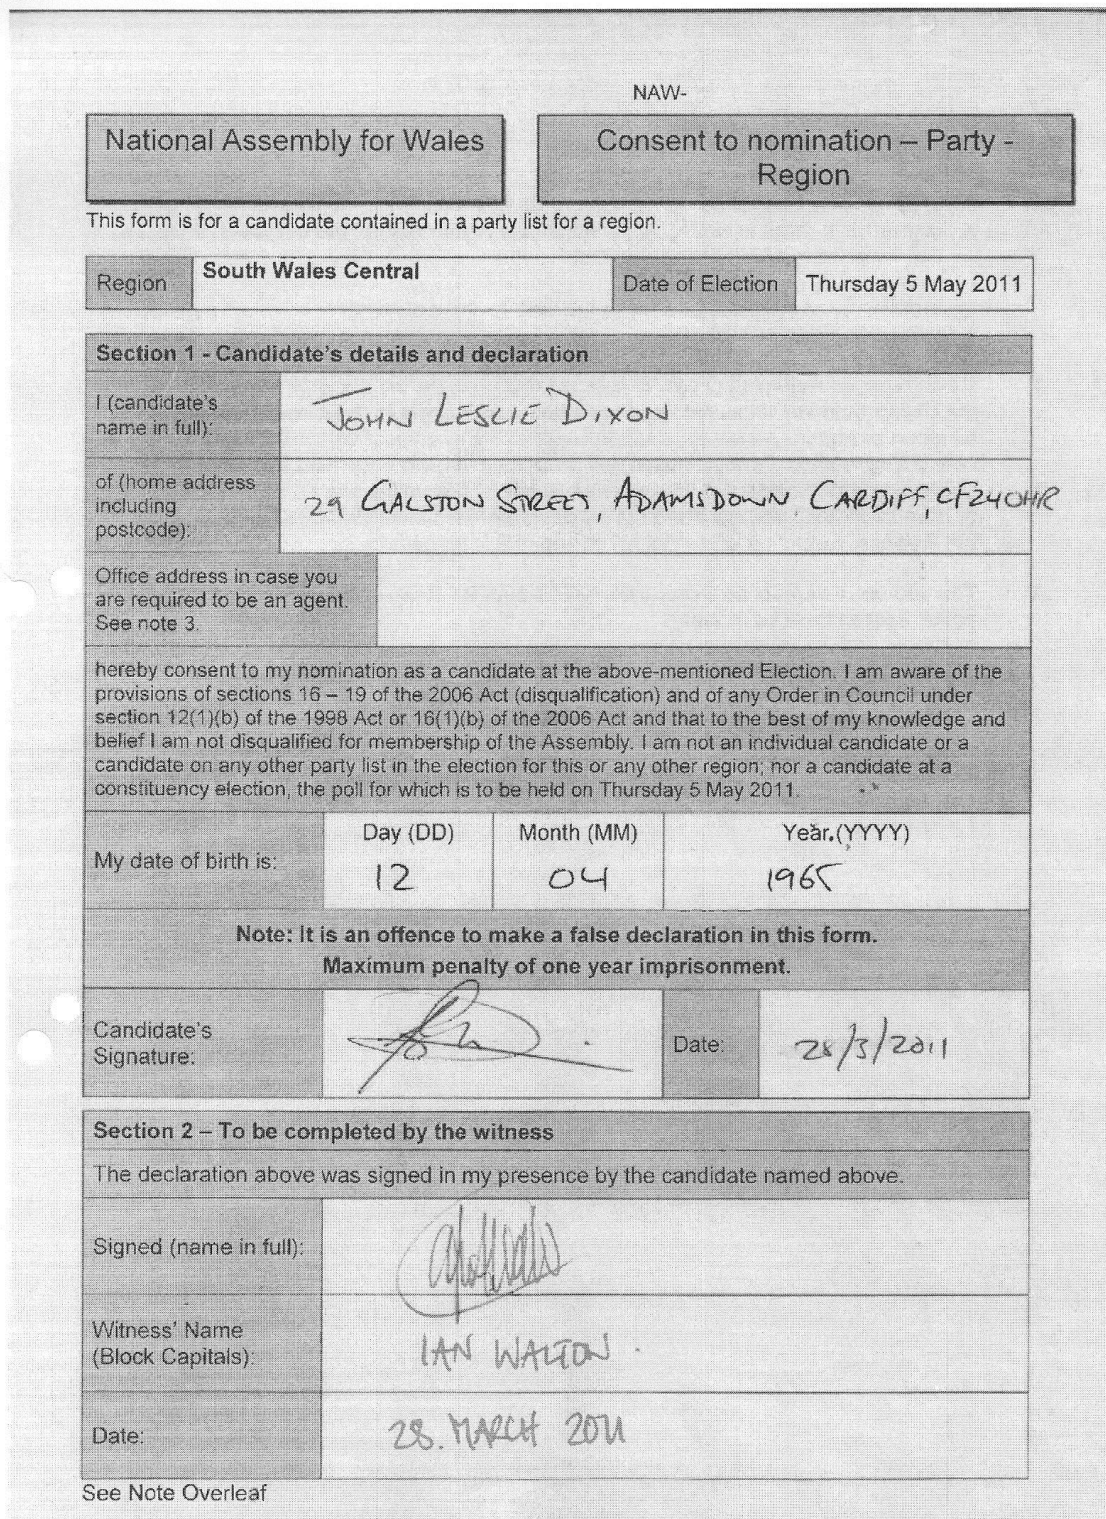 NAW-
National Assembly for Wales
Consent to nomination – Party -
Region
This form is for a candidate contained in a party list for a region.
Region
South Wales Central
Date of Election
Thursday 5 May 2011
Section 1 - Candidate's details and declaration
I (candidate's
name in full):
JOHN LESLIE DIXON
of (home address
including
postcode):
29 GALSTON STREET, ADAMSDOWN, CARDIFF, CF24 0HR
Office address in case you
are required to be an agent.
See note 3.
hereby consent to my nomination as a candidate at the above-mentioned Election. I am aware of the
provisions of sections 16 – 19 of the 2006 Act (disqualification) and of any Order in Council under
section 12(1)(b) of the 1998 Act or 16(1)(b) of the 2006 Act and that to the best of my knowledge and
belief I am not disqualified for membership of the Assembly. I am not an individual candidate or a
candidate on any other party list in the election for this or any other region; nor a candidate at a
constituency election, the poll for which is to be held on Thursday 5 May 2011.
My date of birth is:
Day (DD)
Month (MM)
Year (YYYY)
12
04
1965
Note: It is an offence to make a false declaration in this form.
Maximum penalty of one year imprisonment.
Candidate's
Signature:
Date:
28/3/2011
Section 2 – To be completed by the witness
The declaration above was signed in my presence by the candidate named above.
Signed (name in full):
Witness' Name
(Block Capitals):
IAN WALTON.
Date:
28. MARCH 2011
See Note Overleaf